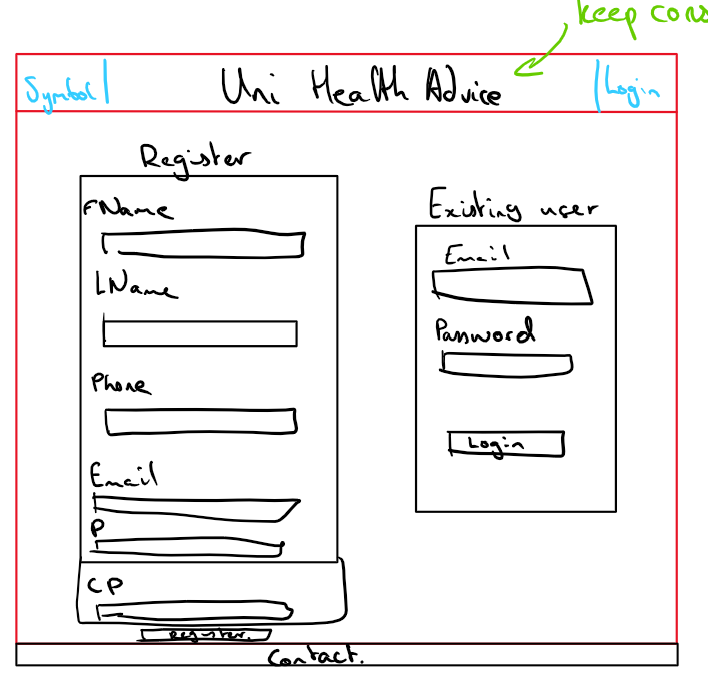 keep cons
Symbol
Uni Health Advice
Login
Register
FName
LName
Phone
Email
P
CP
Register.
Existing user
Email
Password
Login
Contact.